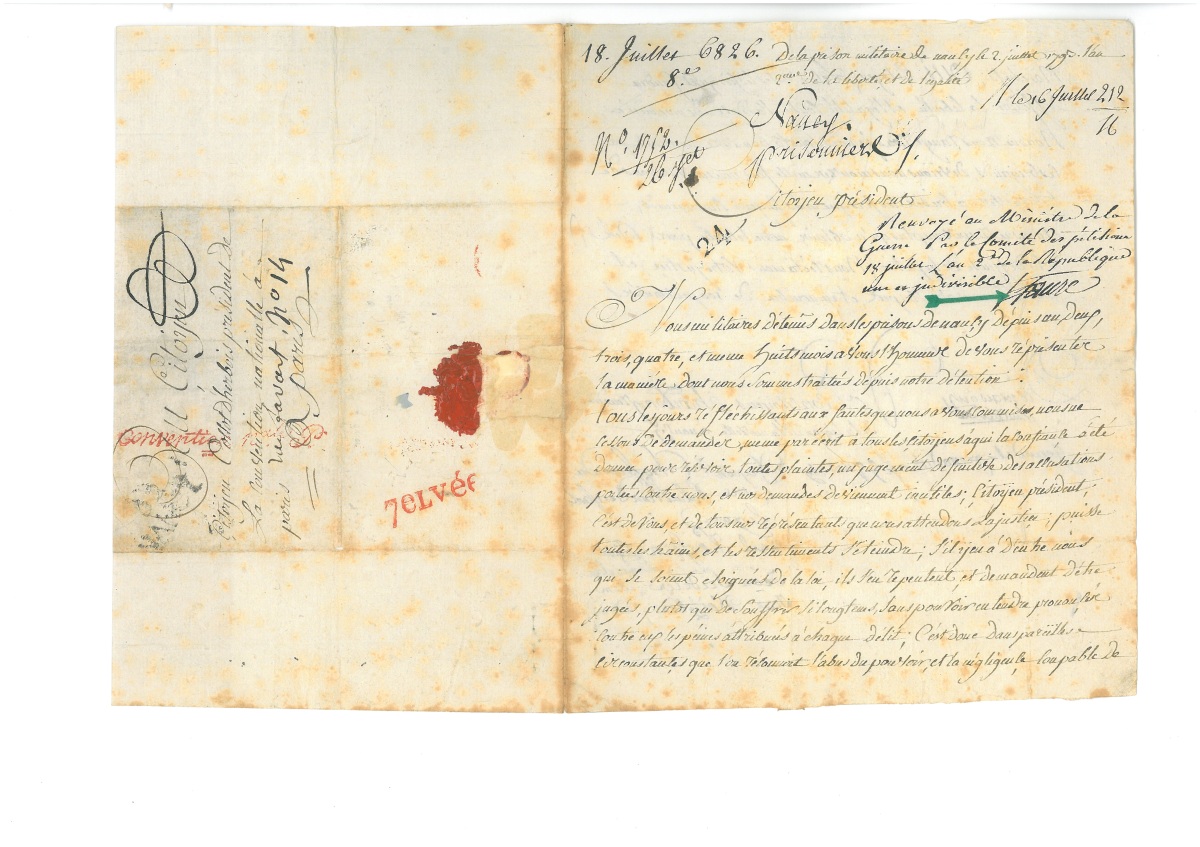 Au Citoyen
Citoyen Colot d'herbois président de
La Convention nationalle à
paris
N° 14
à paris
Conventi
7eLvée
18. Juillet 6826.
8.e
De la prison militaire de nancy le 2. juillet 1793. l'an
2.eme de la liberté, et de l'égalité
le 16 Juillet 212
16
N.° 1752.
26
Nancy.
prisonniers
Citoyen président
24
Renvoyé au Ministre de la
Guerre Par le Comité des pétitions
18 juillet L'an 2.d de la République
une et indivisible
Nous militaires détenus dans les prisons de nancy dépuis un, deux,
trois, quatre, et meme huits mois avons l'honneur de vous représenter
la manière dont nous sommes traités dépuis notre détention :
tous les jours réfléchissants aux fautes que nous avons commises, nous ne
cessons de demander, meme par écrit à tous les Citoyens à qui la confiance a été
donnée pour recevoir toutes plaintes, un jugement définitif des accusations
portées contre nous, et nos demandes deviennent inutiles; Citoyen président,
C'est de vous, et de tous nos représentants que nous attendons la justice; puisse
toutes les haines, et les ressentiments s'éteindre; s'il y en à d'entre nous
que se soient éloignées de la loi, ils s'en repentent, et demandent d'être
jugés, plutot que de souffrir si longtems, sans pouvoir entendre prononcer
contre eux les peines attribuées à chaque délit; C'est donc dans pareilles
circonstances que l'on réconnoit l'abus du pouvoir, et la négligence coupable de